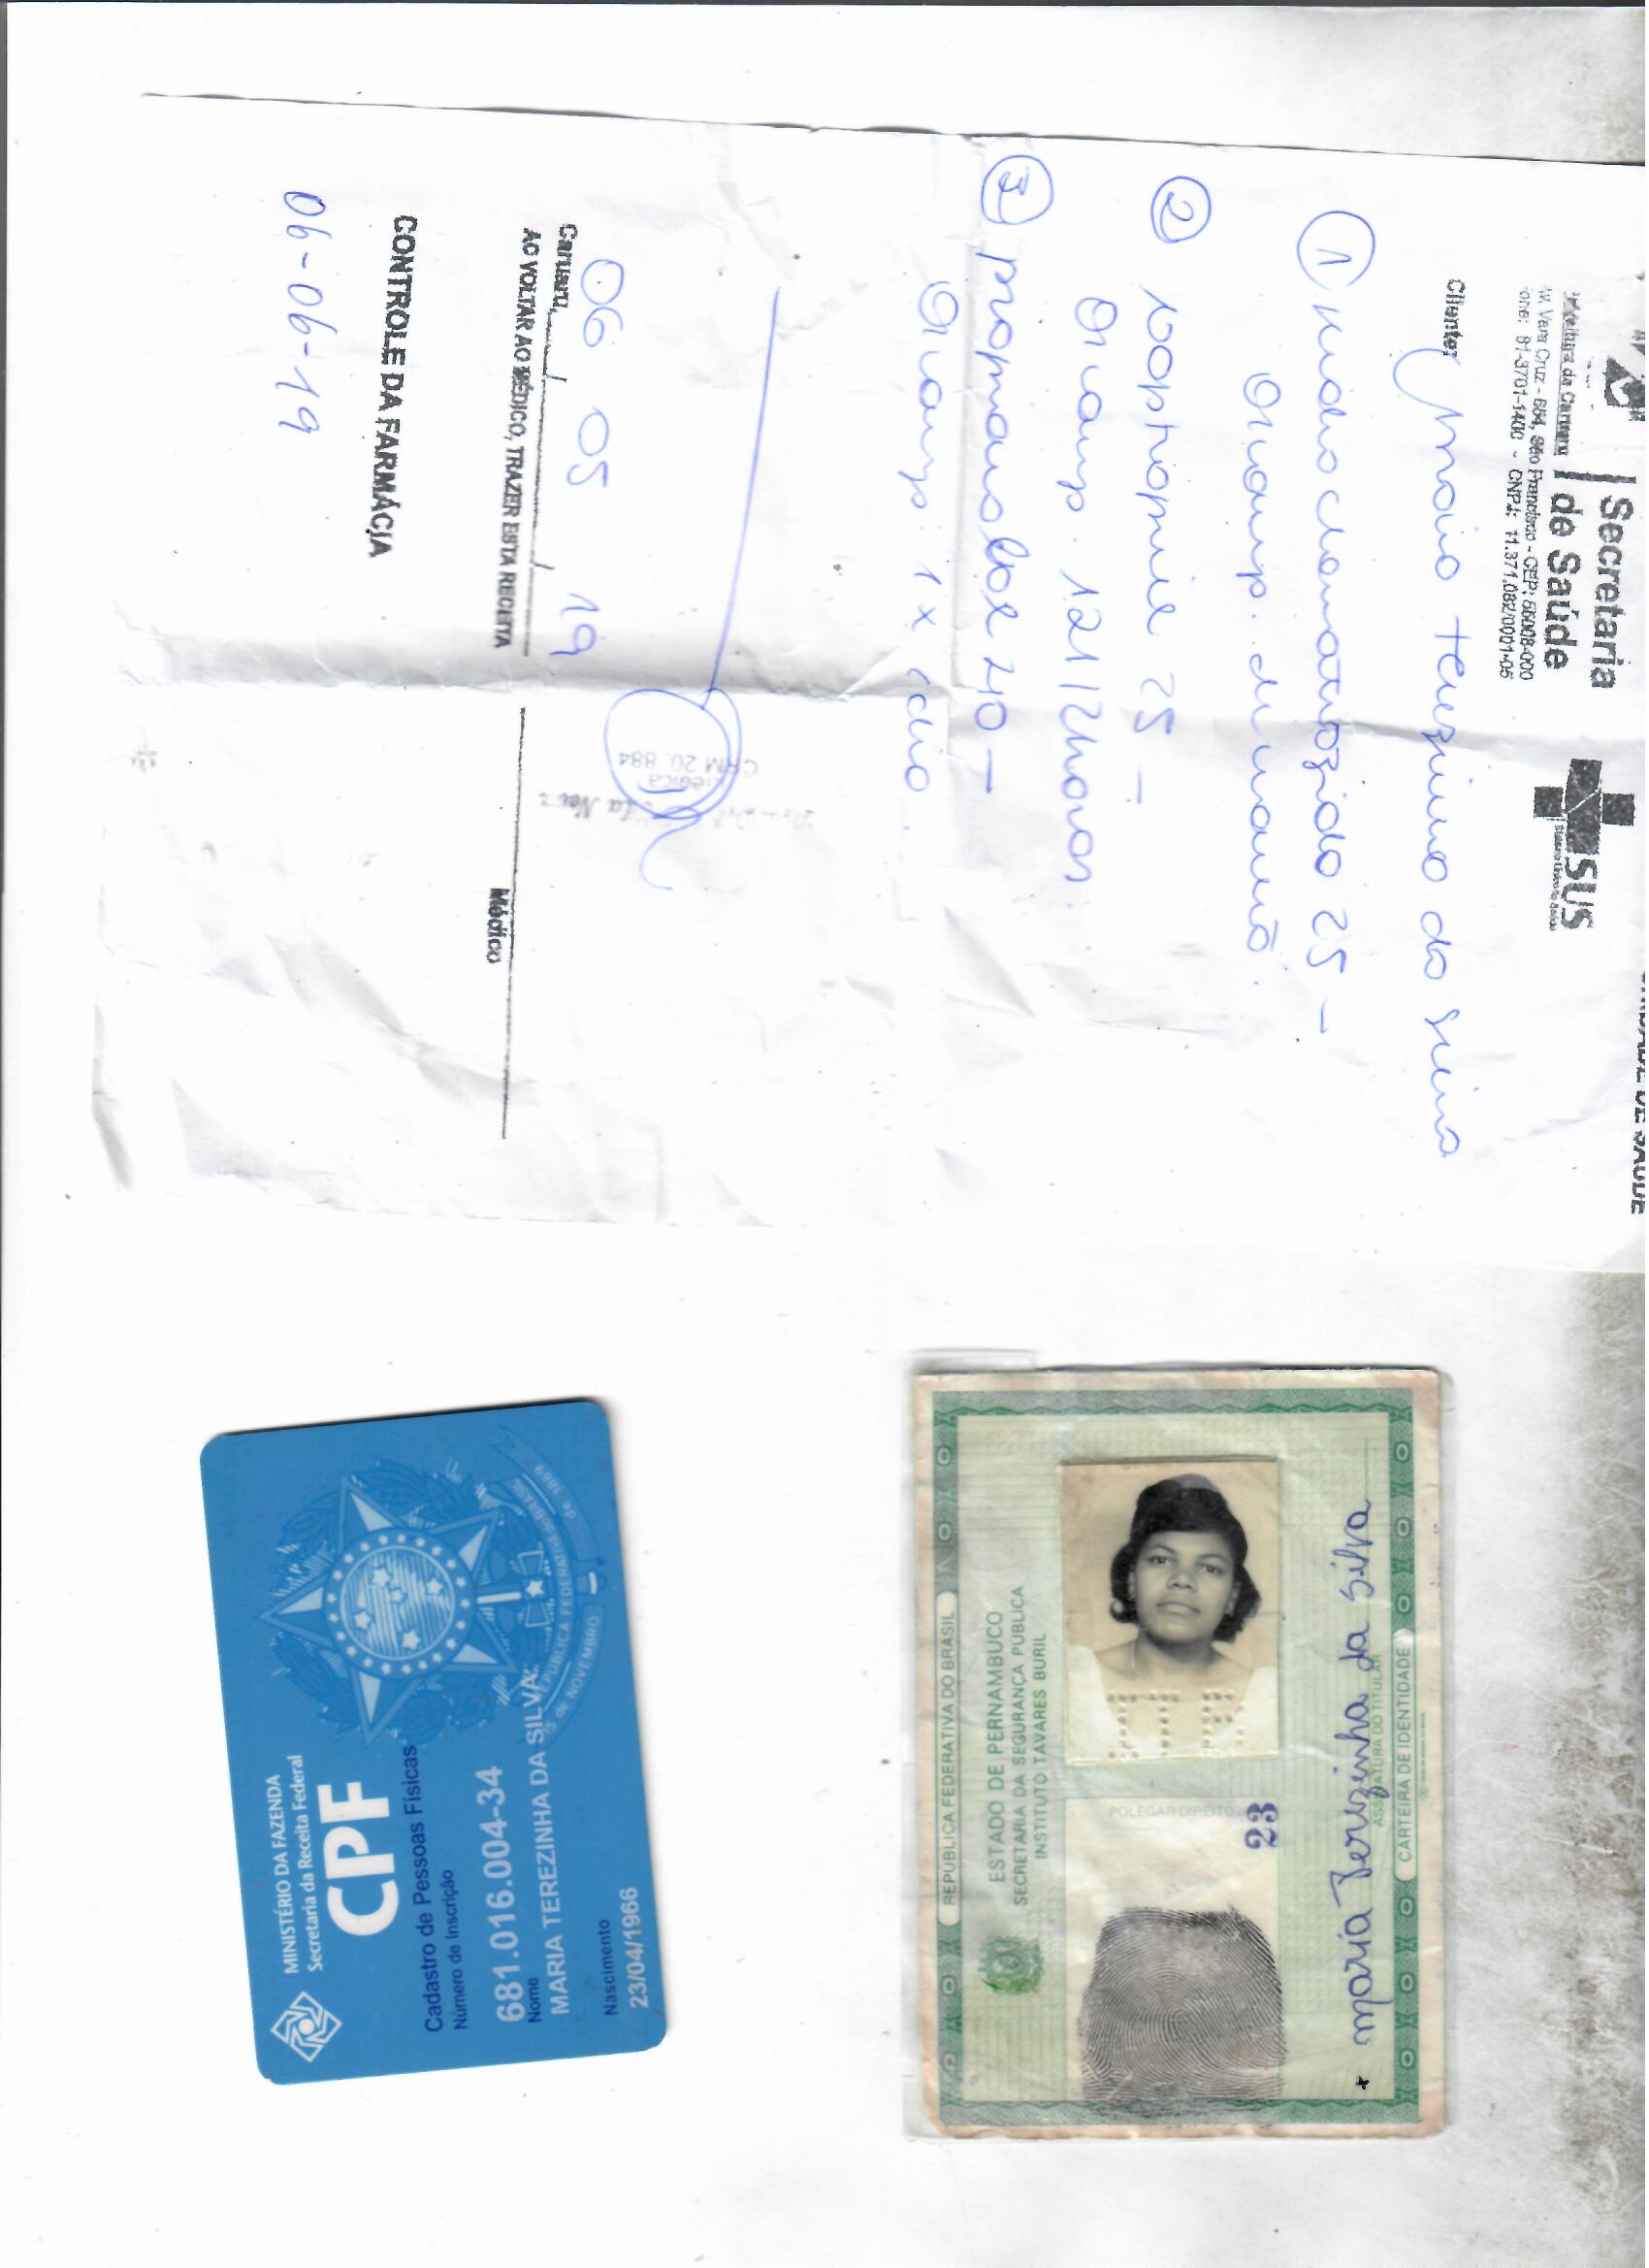 Secretaria
de Saúde
Prefeitura de Caruaru
SUS
Sistema Único de Saúde
UNIDADE DE SAÚDE
Av. Vera Cruz - 654, São Francisco - CEP: 55008-000
Fone: 81-3701-1400 - CNPJ: 11.371.082/0001-05
Cliente: Maria Terezinha da Silva
① Hidroclorotiazida 25 -
01 comp. de manhã.
② Captopril 25 -
01 comp. 12/12horas.
③ Propranolol 40 -
01 comp. 1x dia.
CRM 20.884
Caruaru, 06 / 05 / 19
AO VOLTAR AO MÉDICO, TRAZER ESTA RECEITA
Médico
CONTROLE DA FARMÁCIA
06-06-19
MINISTÉRIO DA FAZENDA
Secretaria da Receita Federal
CPF
Cadastro de Pessoas Físicas
Número de Inscrição
681.016.004-34
Nome
MARIA TEREZINHA DA SILVA
Nascimento
23/04/1966
REPÚBLICA FEDERATIVA DO BRASIL
ESTADO DE PERNAMBUCO
SECRETARIA DA SEGURANÇA PÚBLICA
INSTITUTO TAVARES BURIL
POLEGAR DIREITO
23
ITB
maria Terezinha da Silva
ASSINATURA DO TITULAR
CARTEIRA DE IDENTIDADE